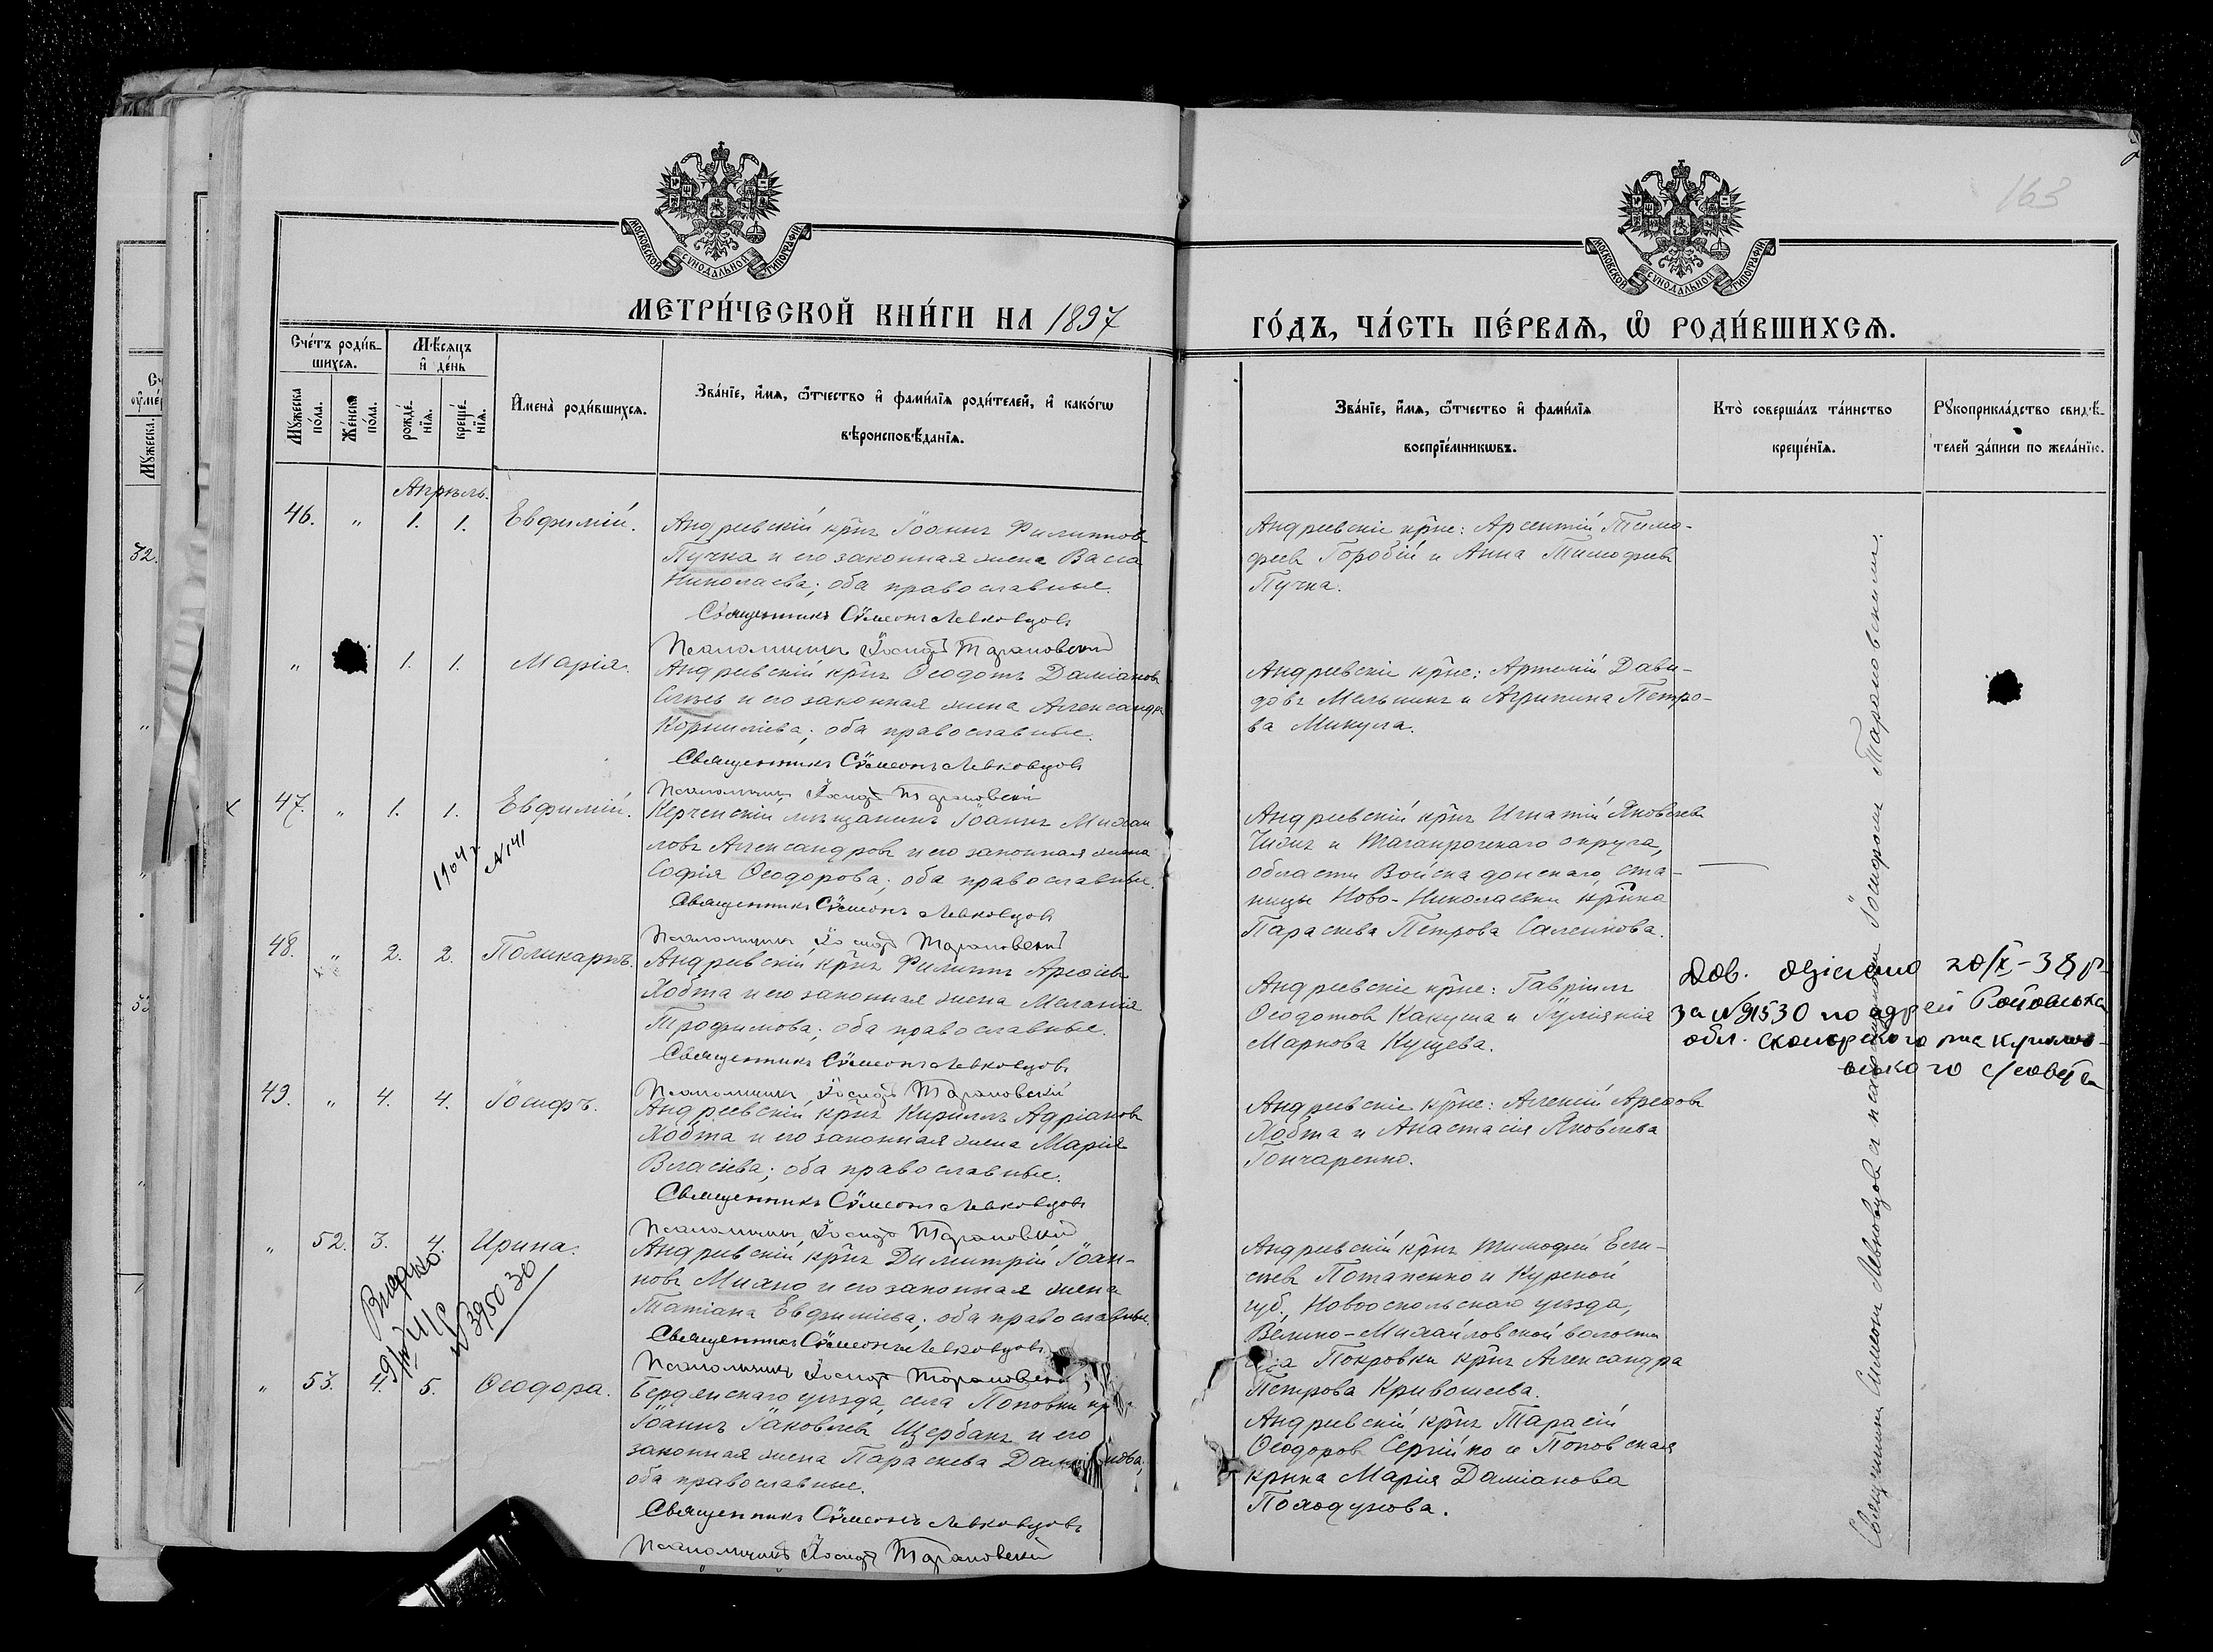 163
МОСКОВСКОЙ СУНОДАЛЬНОЙ ТИПОГРАФІИ
МОСКОВСКОЙ СУНОДАЛЬНОЙ ТИПОГРАФІИ
МЕТРИ́ЧЕСКОЙ КНИ́ГИ НА 1897
ГО́ДЪ, ЧА́СТЬ ПЕ́РВАѦ, Ѡ҆ РОДИ́ВШИХСѦ.
Сче́тъ роди́в-
шихсѧ.
Мѣ́сѧцъ
и҆ де́нь
Мꙋ́жеска
по́ла.
Же́нска
по́ла.
рожде́-
нїѧ.
креще́-
нїѧ.
И҆мена̀ роди́вшихсѧ.
Зва́нїе, и҆́мѧ, ѻ҆́тчество и҆ фами́лїѧ роди́телей, и҆ како́гѡ
вѣроисповѣ́данїѧ.
Зва́нїе, и҆́мѧ, ѻ҆́тчество и҆ фами́лїѧ
воспрїе́мникѡвъ.
Кто̀ соверша́лъ та́инство
креще́нїѧ.
Рꙋкоприкла́дство свидѣ́-
телей за́писи по жела́нїю.
Апрѣль.
46. " 1. 1. Евфимій.
Андреевскій кр̃нъ Іоаннъ Филипповъ
Пучка и его законная жена Васса
Николаева; оба православные.
Священникъ Сѵмеонъ Левковцовъ
Псаломщикъ Іосифъ Тарановскій
Андреевскіе кр̃не: Арсентій Тимо-
феевъ Горобій и Анна Тимофеева
Пучка.
" 1. 1. Марія.
Андреевскій кр̃нъ Ѳеодотъ Даміановъ
и его законная жена Александра
Корниліева; оба православные.
Священникъ Сѵмеонъ Левковцовъ
Псаломщикъ Іосифъ Тарановскій
Андреевскіе кр̃не: Артемій Дави-
довъ Мельникъ и Агрипина Петро-
ва Микула.
47. " 1. 1. Евфимій.
1904 г
№ 141
Керченскій мѣщанинъ Іоаннъ Михаи-
ловъ Александровъ и его законная жена
Софія Ѳеодорова; оба православные.
Священникъ Сѵмеонъ Левковцовъ
Псаломщикъ Іосифъ Тарановскій
Андреевскій кр̃нъ Игнатій Яковлевъ
Чижъ и Таганрогскаго округа,
области Войска донскаго, ста-
ницы Ново-Николаевки кр̃нка
Параскева Петрова
48. " 2. 2. Поликарпъ.
Андреевскій кр̃нъ Филиппъ
Хобта и его законная жена Меланія
Трофимова; оба православные.
Священникъ Сѵмеонъ Левковцовъ
Псаломщикъ Іосифъ Тарановскій
Андреевскіе кр̃не: Гавріилъ
Ѳеодотовъ Какуша и Іуліанія
Маркова Кущева.
Дов. 20/X-38 р.
за №91530 по
обл.
49. " 4. 4. Іосифъ.
Андреевскій кр̃нъ Кириллъ Адріановъ
Хобта и его законная жена Марія
Власіева; оба православные.
Священникъ Сѵмеонъ Левковцовъ
Псаломщикъ Іосифъ Тарановскій
Андреевскіе кр̃не: Алексій
Хобта и Анастасія Яковлева
Гончаренко.
" 52. 3. 4. Ирина.
№ 395030
Андреевскій кр̃нъ Димитрій Іоан-
новъ Михно и его законная жена
Татіана Евфиміева; оба православные.
Священникъ Сѵмеонъ Левковцовъ
Псаломщикъ Іосифъ Тарановскій
Андреевскій кр̃нъ Тимофей Ели-
сеевъ Потапенко и Курской
губ., Новооскольскаго уѣзда,
Велико-Михайловской волости
Покровки кр̃нъ Александра
Петрова Кривошеева.
" 53. 4. 5. Ѳеодора.
Бердянскаго уѣзда, села Поповки кр
Іоаннъ Іаковлевъ Щербакъ и его
законная жена Параскева
оба православные.
Священникъ Сѵмеонъ Левковцовъ
Псаломщикъ Іосифъ Тарановскій
Андреевскій кр̃нъ Тарасій
Ѳеодоровъ Сергійко и Поповская
крнка Марія Даміанова
Священникъ Симеонъ Левковцовъ и псаломщикомъ Іосифомъ Тарановскимъ.